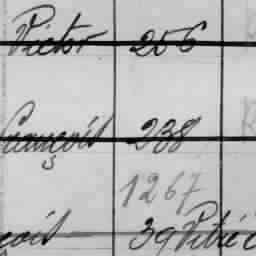 Victor 256
François 238
1267
çois 39 Pitié